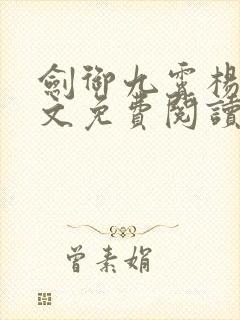 劍御九霄楊
文免費閱讀
曾素娟